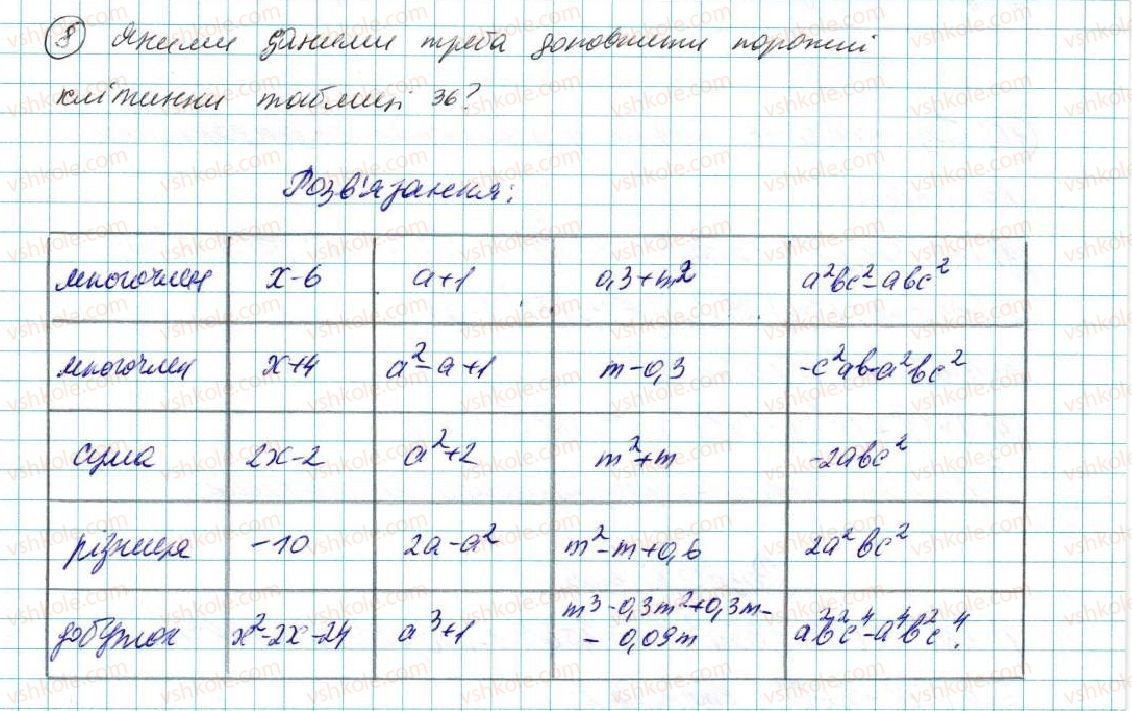 8 Якими даними треба доповнити порожні
клітинки таблиці 36?
Розв'язання:
многочлен x-6 a+1 0,3+m² a²bc²-abc²
многочлен x+4 a²-a+1 m-0,3 -c²ab-a²bc²
сума 2x-2 a²+2 m²+m -2abc²
різниця -10 2a-a² m²-m+0,6 2a²bc²
добуток x²-2x-24 a³+1 m³-0,3m²+0,3m-
- 0,09m a²b²c⁴-a⁴b²c⁴.
vshkole.com